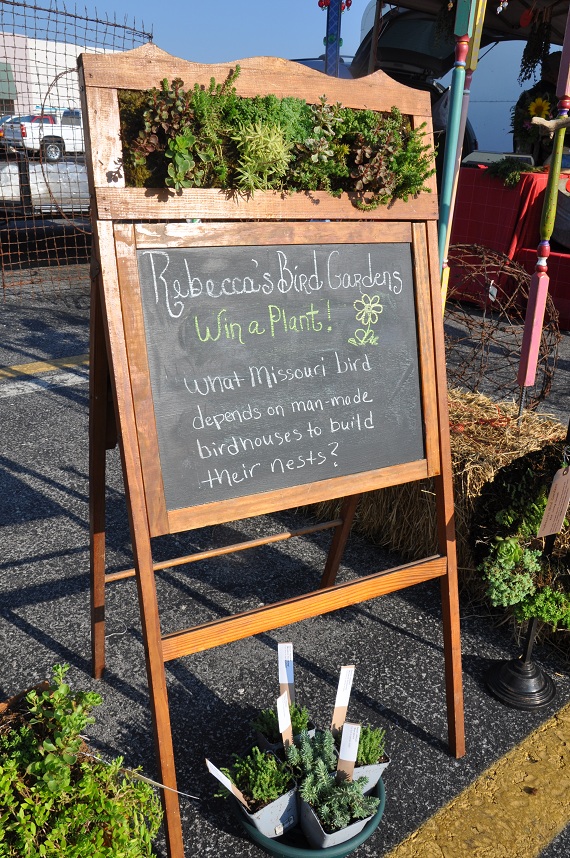 Rebecca's Bird Gardens
Win a Plant!
What Missouri bird
depends on man-made
birdhouses to build
their nests?